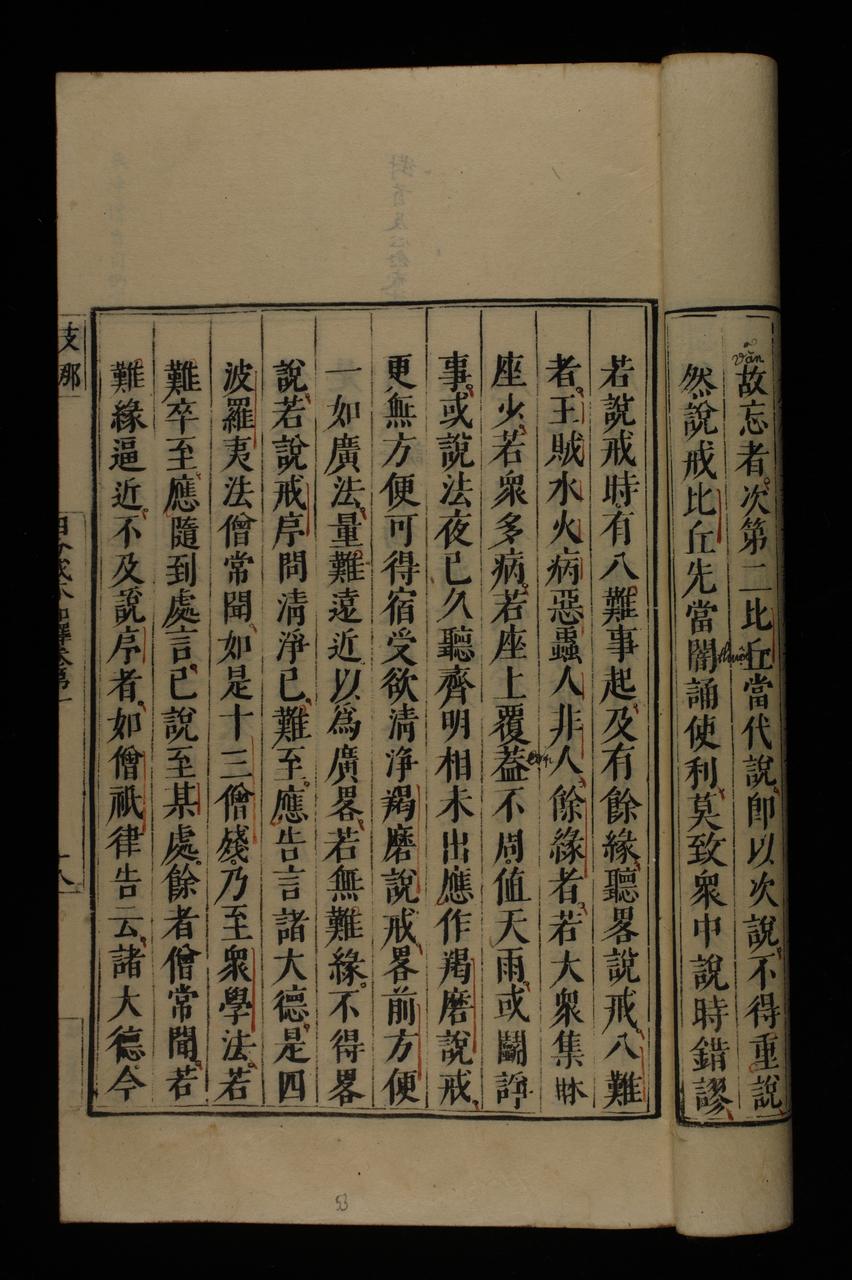 故忘者次第二比丘當代說即以次說不得重說
然說戒比丘先當闇誦使利莫致衆中說時錯謬
若說戒時有八難事起及有餘緣聽畧說戒八難
者王賊水火病惡蟲人非人餘緣者若大衆集牀
座少若衆多病若座上覆蓋不周值天雨或鬬諍
事或說法夜已久聽齊明相未出應作羯磨說戒
更無方便可得宿受欲清淨羯磨說戒畧前方便
一如廣法量難遠近以爲廣畧若無難緣不得畧
說若說戒序問清淨已難至應告言諸大德是四
波羅夷法僧常聞如是十三僧殘乃至衆學法若
難卒至應隨到處言已說至某處餘者僧常聞若
難緣逼近不及說序者如僧祇律告云諸大德今
văn
支那
十八
53